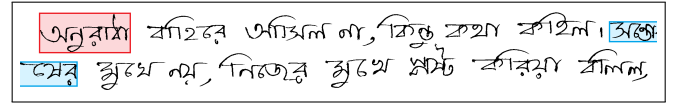 অনুরাধা বাহিরে আসিল না, কিন্তু কথা কহিল। সন্তো
ষের মুখে নয়, নিজের মুখে স্পষ্ট করিয়া বলিল,